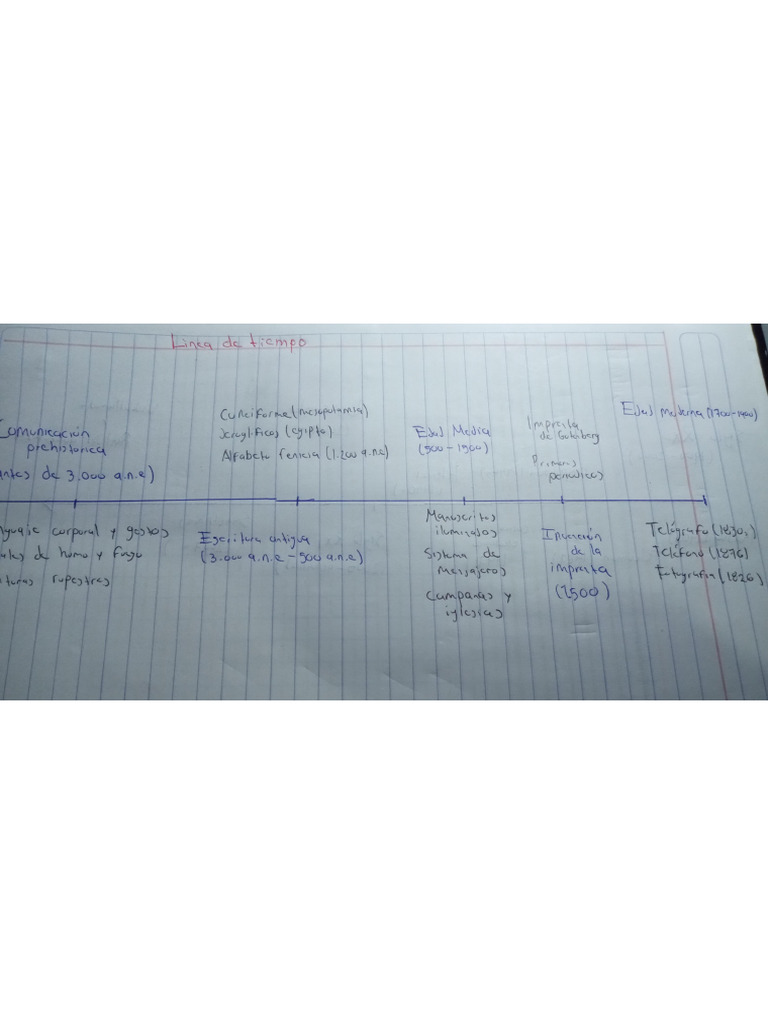 Linea de tiempo
Comunicación
prehistorica
antes de 3.000 a.n.e)
corporal y gestos
de humo y fuego
rupestres
Cuneiforme (mesopotamia)
Jeroglificos (egipto)
Alfabeto fenicia (1.200 a.n.e)
Escritura antigua
(3.000 a.n.e - 500 a.n.e)
Edad Media
(500 - 1500)
Manuscritos
iluminados
Sistema de
mensajeros
Campanas y
iglesias
Imprenta
de Gutenberg
Primeros
periodicos
Invención
de la
imprenta
(1500)
Edad moderna (1700-1900)
Telégrafo (1830,)
Teléfono (1876)
Fotografia (1826)